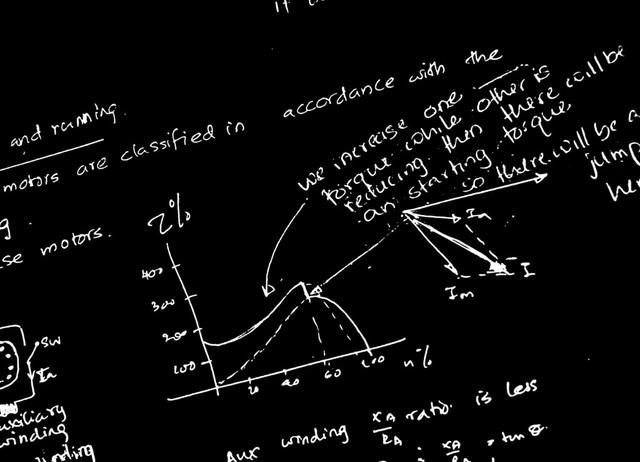 and running.
motors are classified in accordance with the
we increase one
torque while other is
reducing then there will be
an starting torque
so there will be a
jump
her
g.
se motors.
τ%
400
300
200
100
20
40
60
100
n%
Ia
I
Im
SW
Ia
auxiliary
winding
inding
Aux winding XA/RA ratio is less
XA = tan θ